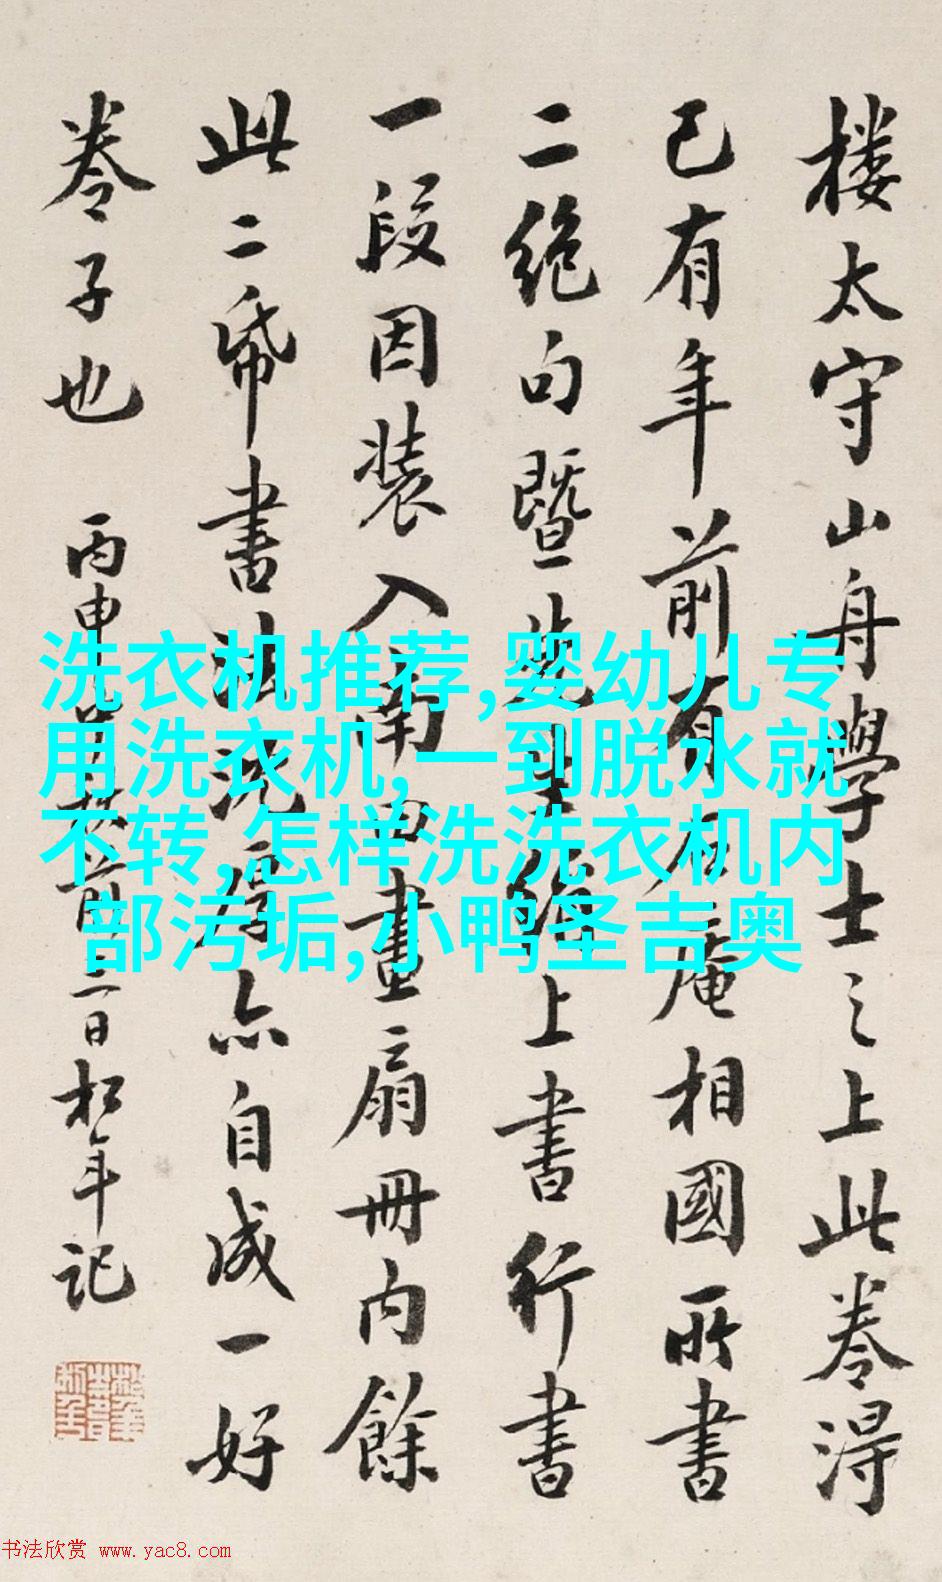 楼太守山舟學士之上此卷淂
已有年前有石庵相國所書
二絕句暨上書行書
一段因裝入南田畫扇冊内餘
此二帋書法渾厚亦自成一好
卷子也 丙申前二日松年記
洗衣机推荐,婴幼儿专
用洗衣机,一到脱水就
不转,怎样洗洗衣机内
部污垢,小鸭圣吉奥
书法欣赏 www.yac8.com